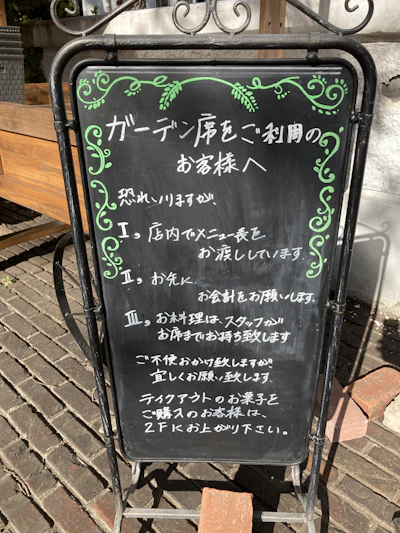 ガーデン席をご利用の
お客様へ
恐れ入りますが、
Ⅰ, 店内でメニュー表を
お渡ししています.
Ⅱ, お先に
お会計をお願いします.
Ⅲ, お料理は、スタッフが
お席までお持ち致します
ご不便おかけ致しますが、
宜しくお願い致します.
テイクアウトのお菓子を
ご購入のお客様は、
2Fにお上がり下さい。